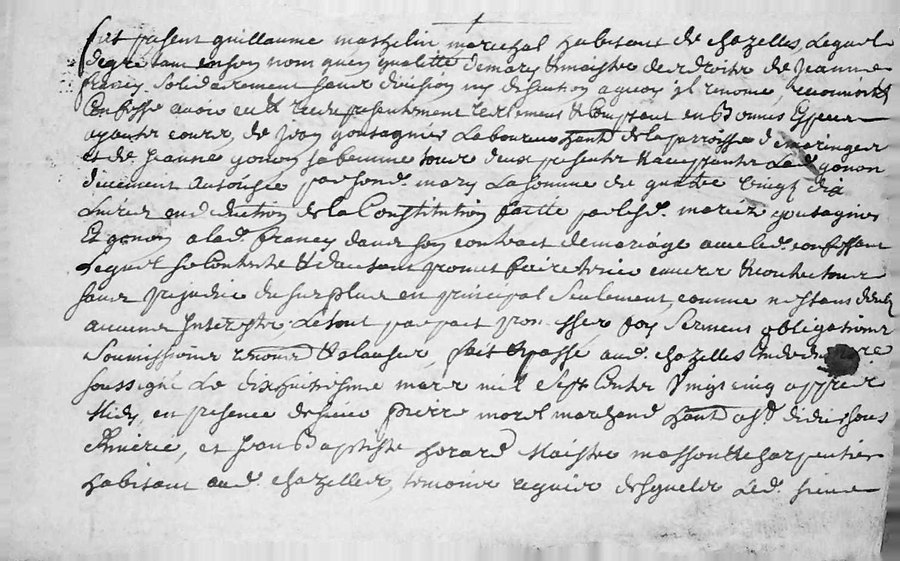 fut present guillaume mathelin marechal habitant de chazelles, Lequel
degre tant en son nom quen qualitte de mary & maistre des droits de Jeanne
francey solidairement sans division ny discution a quoy il renonce, reconnoit &
Confesse avoir eu & receu presentement reelement & Comptant en Bonnes Especes
ayants cours, de jean goutagnier Laboureur hant de la parroisse de maringes
et de Jeanne gonon sa femme tous deux presents & acceptants Lad. gonon
duement autorisée par sond. mary La somme de quatre vingt dix
Livres en deduction de la Constitution faitte par lesd. mariez goutagnier
Et gonon a lad. francey dans son contract de mariage avec led. confessant
Lequel se Contente & dautant promet faire tenir quitte envers & contre tous
sans prejudice du surplus en principal seulement, comme nestant deub
aucuns Interests. Le tout par pact pro. esser foy serment obligations
soumissions renon. & clauses, fait & passé aud. chazelles Etude du no.re
soussigné Le dixhuitiesme mars mil sept Cents Vingt cinq appres
Midy, en presence de sieur pierre morel marchand hant a St. didier sous
Riverie, et Jean Baptiste gerard Maistre masson & charpentier
habitant aud. chazelles, temoins requis desquels Led. sieur